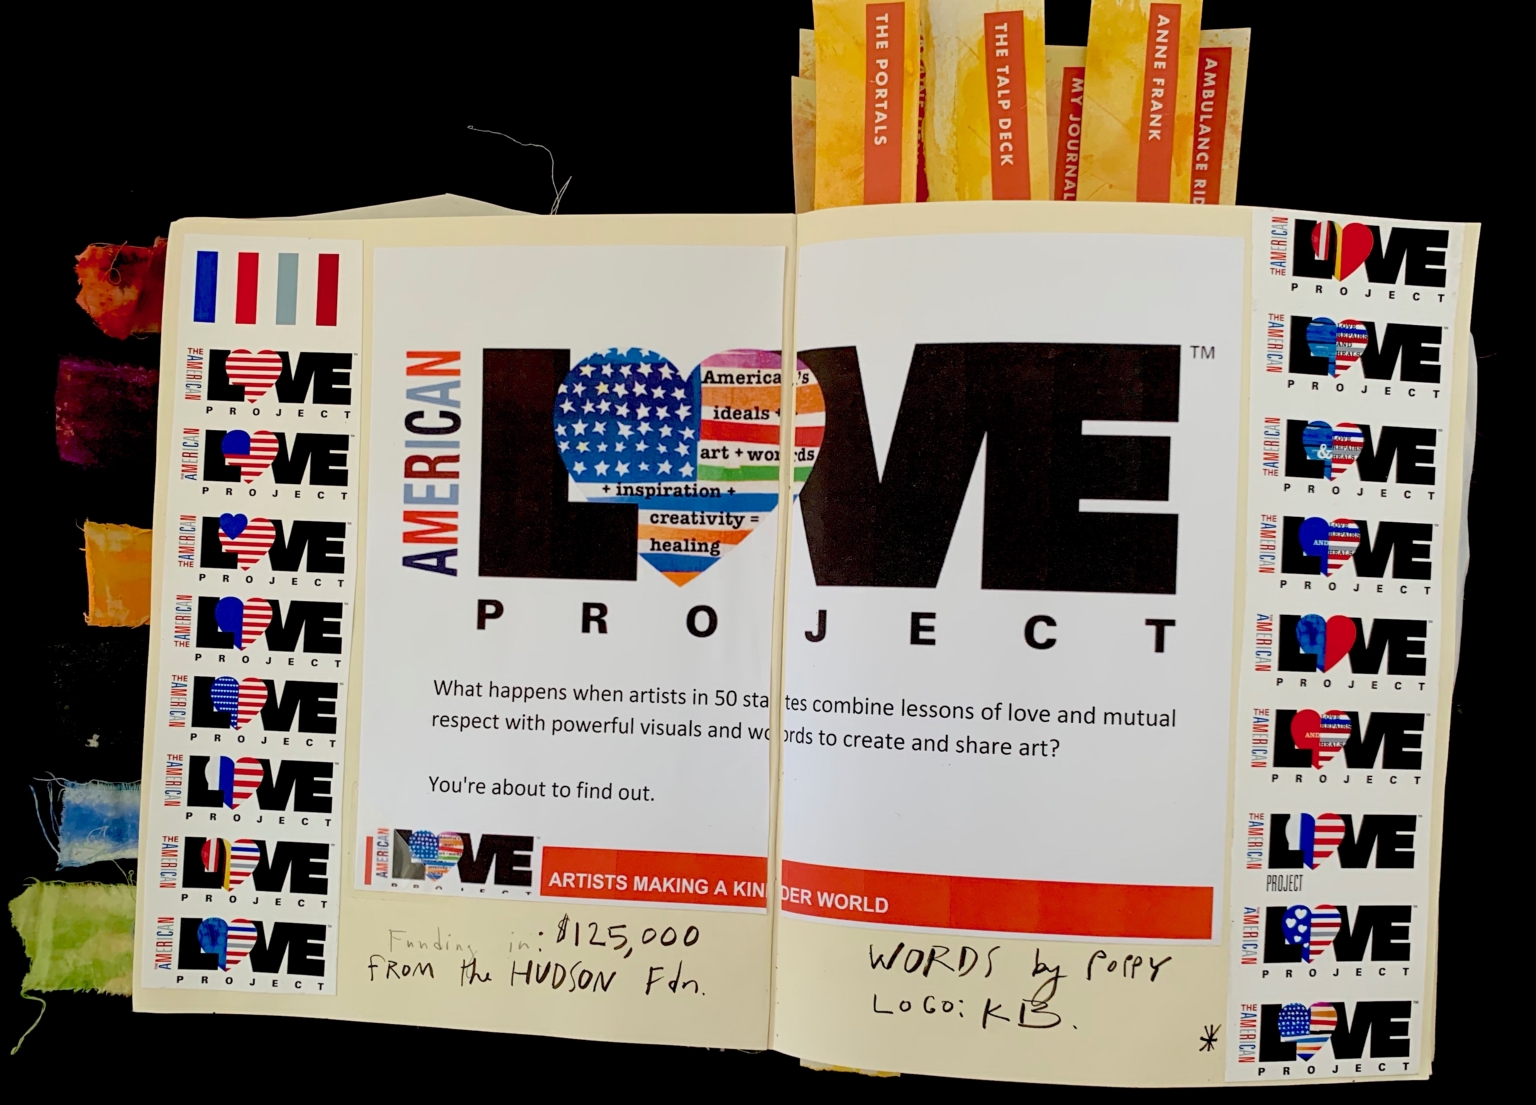 THE PORTALS
THE TALP DECK
MY JOURNAL
ANNE FRANK
AMBULANCE RID
THE AMERICAN LOVE
PROJECT
AMERICAN LOVE
PROJECT
THE AMERICAN LOVE
PROJECT
THE AMERICAN LOVE
PROJECT
THE AMERICAN LOVE
PROJECT
THE AMERICAN LOVE
PROJECT
THE AMERICAN LOVE
PROJECT
AMERICAN LOVE
PROJECT
AMERICAN LOVE ™
America's
ideals +
art + words
+ inspiration +
creativity =
healing
PROJECT
What happens when artists in 50 states combine lessons of love and mutual
respect with powerful visuals and words to create and share art?
You're about to find out.
AMERICAN LOVE
PROJECT
ARTISTS MAKING A KINDER WORLD
Funding in: $125,000
FROM the HUDSON Fdn.
WORDS by POPPY
LOGO: KB.
*
THE AMERICAN LOVE
PROJECT
THE AMERICAN LOVE
LOVE
REPAIRS
AND
HEALS
PROJECT
THE AMERICAN LOVE
&
LOVE
REPAIRS
HEALS
PROJECT
THE AMERICAN LOVE
AND
LOVE
REPAIRS
HEALS
PROJECT
THE AMERICAN LOVE
PROJECT
THE AMERICAN LOVE
AND
LOVE
REPAIRS
HEALS
PROJECT
THE AMERICAN LOVE
PROJECT
THE AMERICAN LOVE
PROJECT
THE AMERICAN LOVE
PROJECT